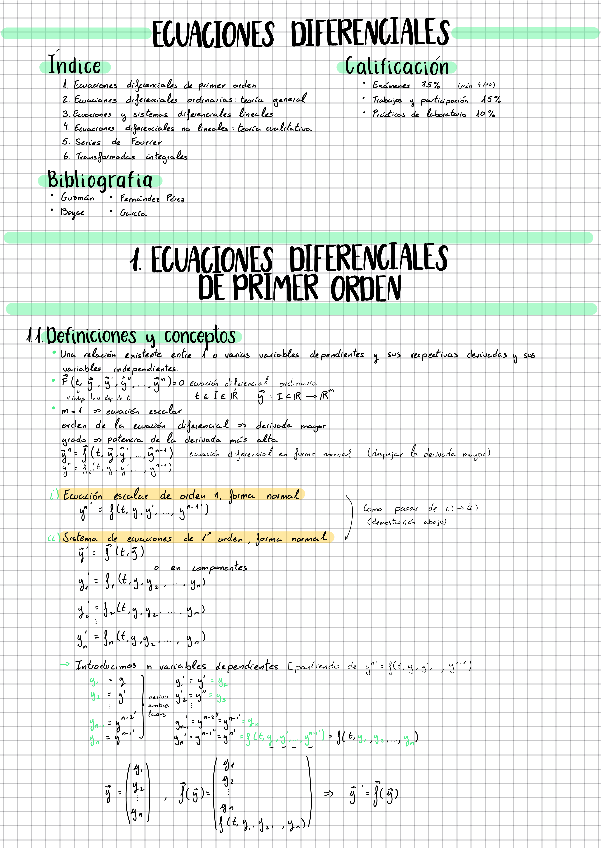 ECUACIONES DIFERENCIALES
Índice
1. Ecuaciones diferenciales de primer orden
2. Ecuaciones diferenciales ordinarias: teoría general
3. Ecuaciones y sistemas diferenciales lineales
4. Ecuaciones diferenciales no lineales: teoría cualitativa
5. Series de Fourier
6. Transformadas integrales
Calificación
• Exámenes 75%
• Trabajos y participación 15%
• Prácticas de laboratorio 10%
Bibliografía
• Guzmán • Fernández Pérez
• Boyce • García
1. ECUACIONES DIFERENCIALES
DE PRIMER ORDEN
1.1. Definiciones y conceptos
• Una relación existente entre 1 o varias variables dependientes y sus respectivas derivadas y sus
variables independientes.
• F⃗(t, y⃗, y⃗', y⃗'', ..., y⃗ⁿ) = 0 ecuación diferencial ordinaria
t ∈ I ⊂ ℝ y⃗ : I ⊂ ℝ → ℝᵐ
• m = 1 ⇒ ecuación escalar
orden de la ecuación diferencial ⇒ derivada mayor
grado ⇒ potencia de la derivada más alta
y⃗ⁿ = f⃗(t, y⃗, y⃗', ..., y⃗ⁿ⁻¹) ecuación diferencial en forma normal (despejar la derivada mayor)
i) Ecuación escalar de orden n, forma normal
yⁿ = f(t, y, y', ..., yⁿ⁻¹)
Como pasar de i) → ii)
(demostración abajo)
ii) Sistema de ecuaciones de 1ᵉʳ orden, forma normal
y⃗' = f⃗(t, y⃗)
o en componentes
y₁' = f₁(t, y₁, y₂, ..., yₙ)
y₂' = f₂(t, y₁, y₂, ..., yₙ)
⋮
yₙ' = fₙ(t, y₁, y₂, ..., yₙ)
→ Introducimos n variables dependientes (partiendo de yⁿ = f(t, y, y', ..., yⁿ⁻¹))
y₁ = y y₁' = y' = y₂
y₂ = y' y₂' = y'' = y₃
⋮ ⋮
yₙ₋₁ = yⁿ⁻² yₙ₋₁' = yⁿ⁻²' = yⁿ⁻¹ = yₙ
yₙ = yⁿ⁻¹ yₙ' = yⁿ⁻¹' = yⁿ = f(t, y, y', ..., yⁿ⁻¹) = f(t, y₁, y₂, ..., yₙ)
y⃗ = (y₁ y₂ ⋮ yₙ), f⃗(y⃗) = (y₁ y₂ ⋮ yₙ f(t, y₁, y₂, ..., yₙ)) ⇒ y⃗' = f⃗(y⃗)